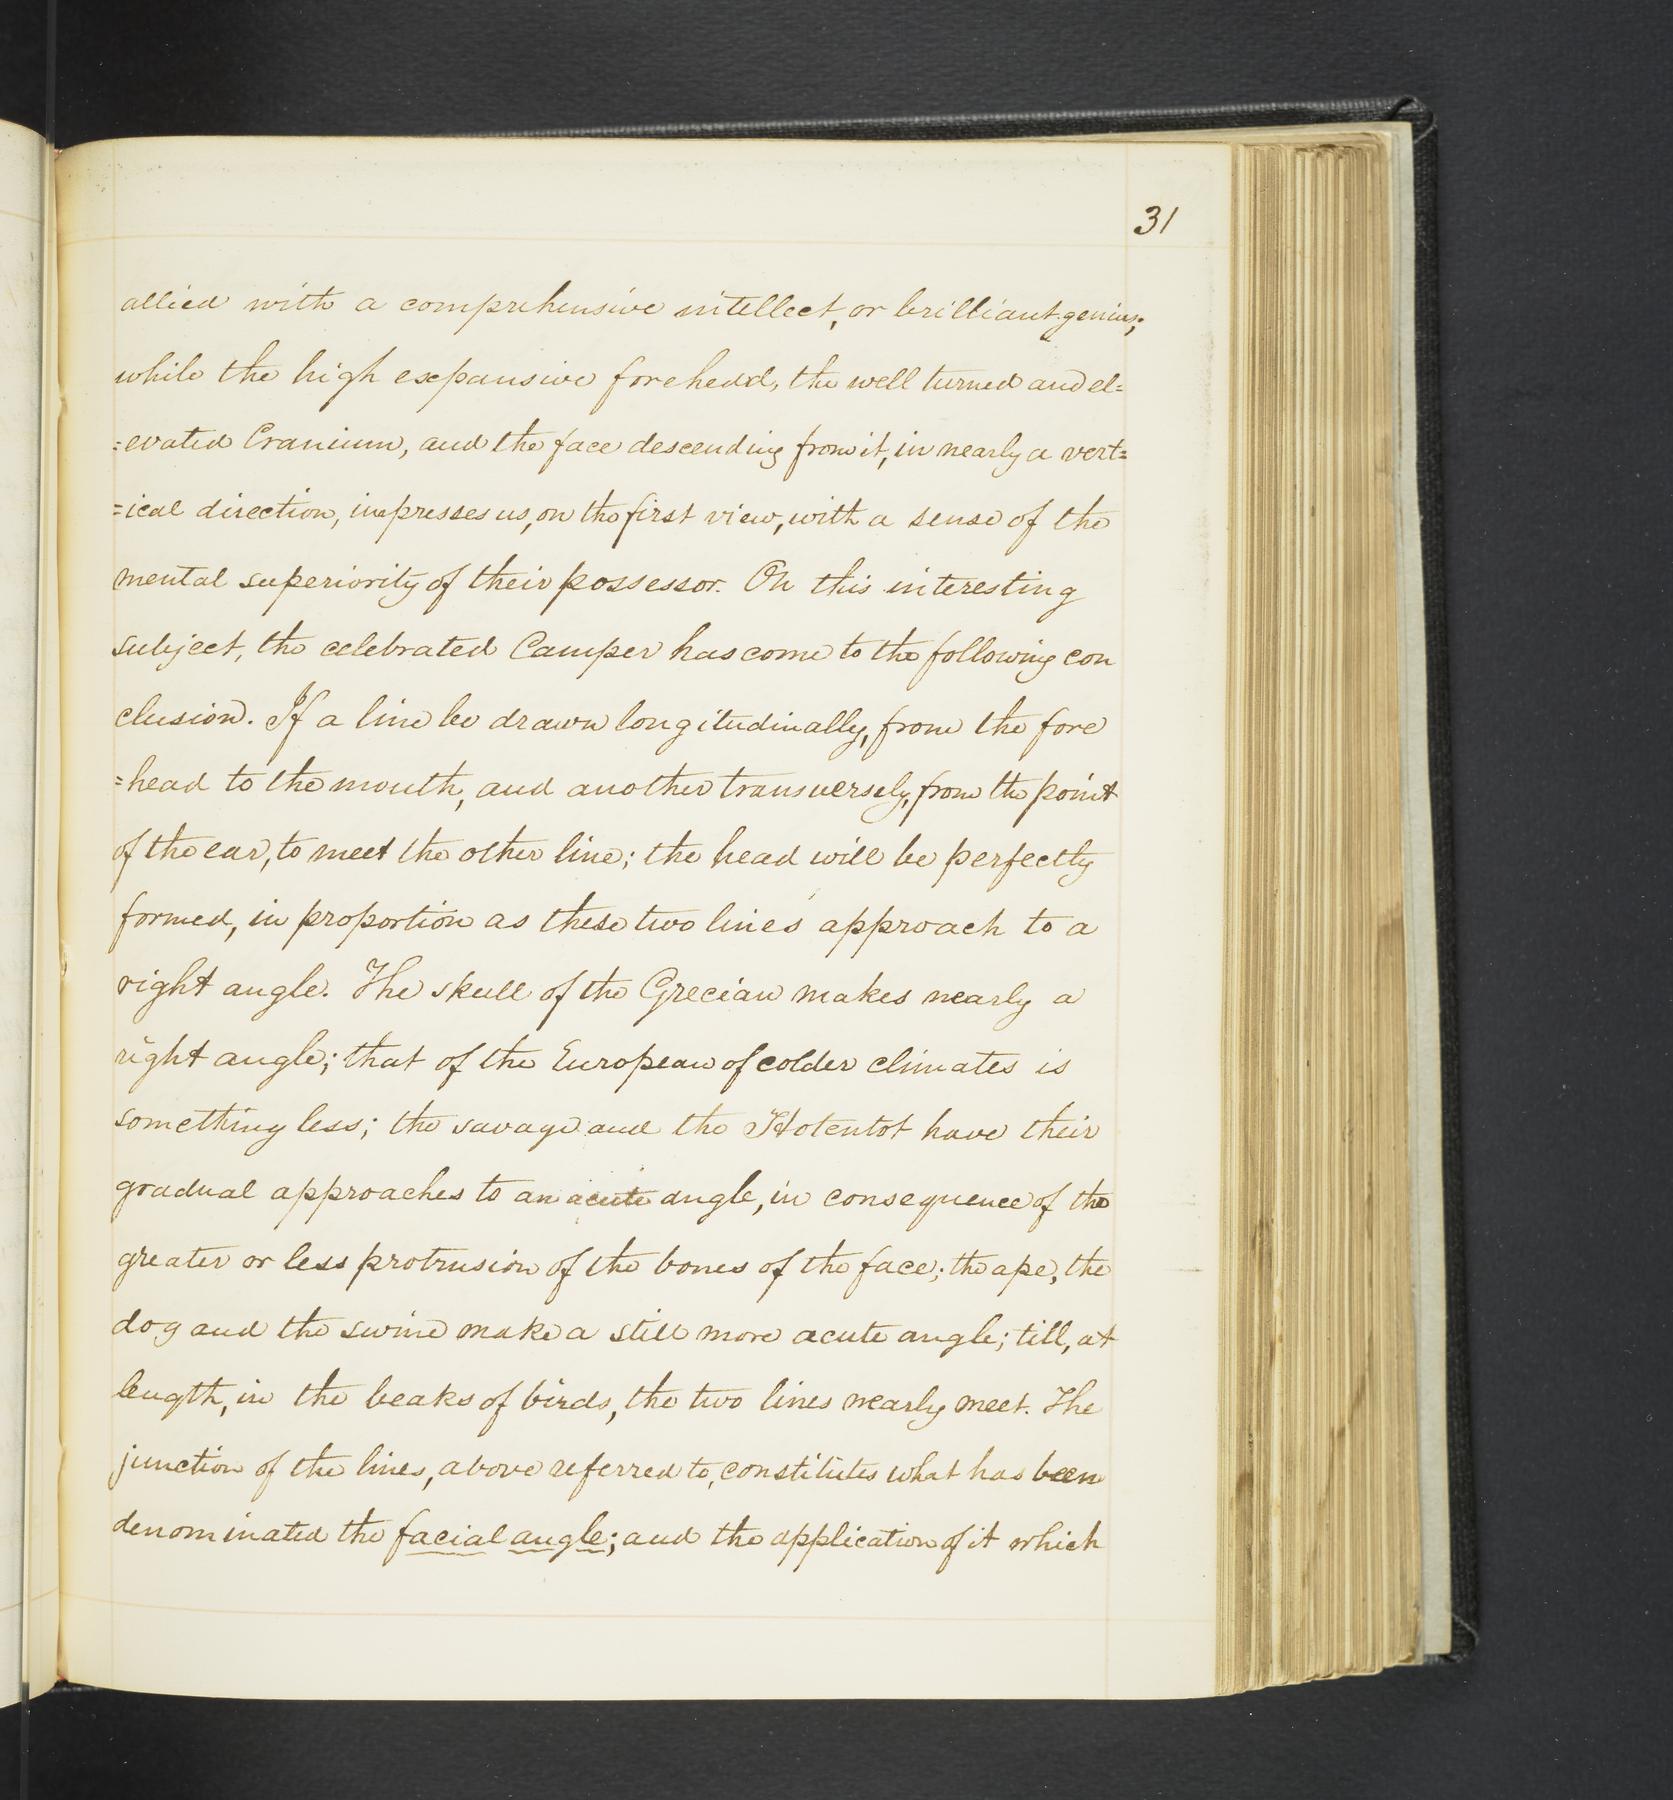 31
allied with a comprehensive intellect, or brilliant genius;
while the high expansive forehead, the well turned and el=
=evated Cranium, and the face descending from it, in nearly a vert=
=ical direction, impresses us, on the first view, with a sense of the
mental superiority of their possessor. On this interesting
subject, the celebrated Camper has come to the following con
clusion. If a line be drawn longitudinally, from the fore
=head to the mouth, and another transversely, from the point
of the ear, to meet the other line; the head will be perfectly
formed, in proportion as these two lines approach to a
right angle. The skull of the Grecian makes nearly a
right angle; that of the European of colder climates is
something less; the savage and the Hotentot have their
gradual approaches to an acute angle, in consequence of the
greater or less protrusion of the bones of the face; the ape, the
dog and the swine make a still more acute angle; till, at
length, in the beaks of birds, the two lines nearly meet. The
junction of the lines, above referred to, constitutes what has been
denominated the facial angle; and the application of it which